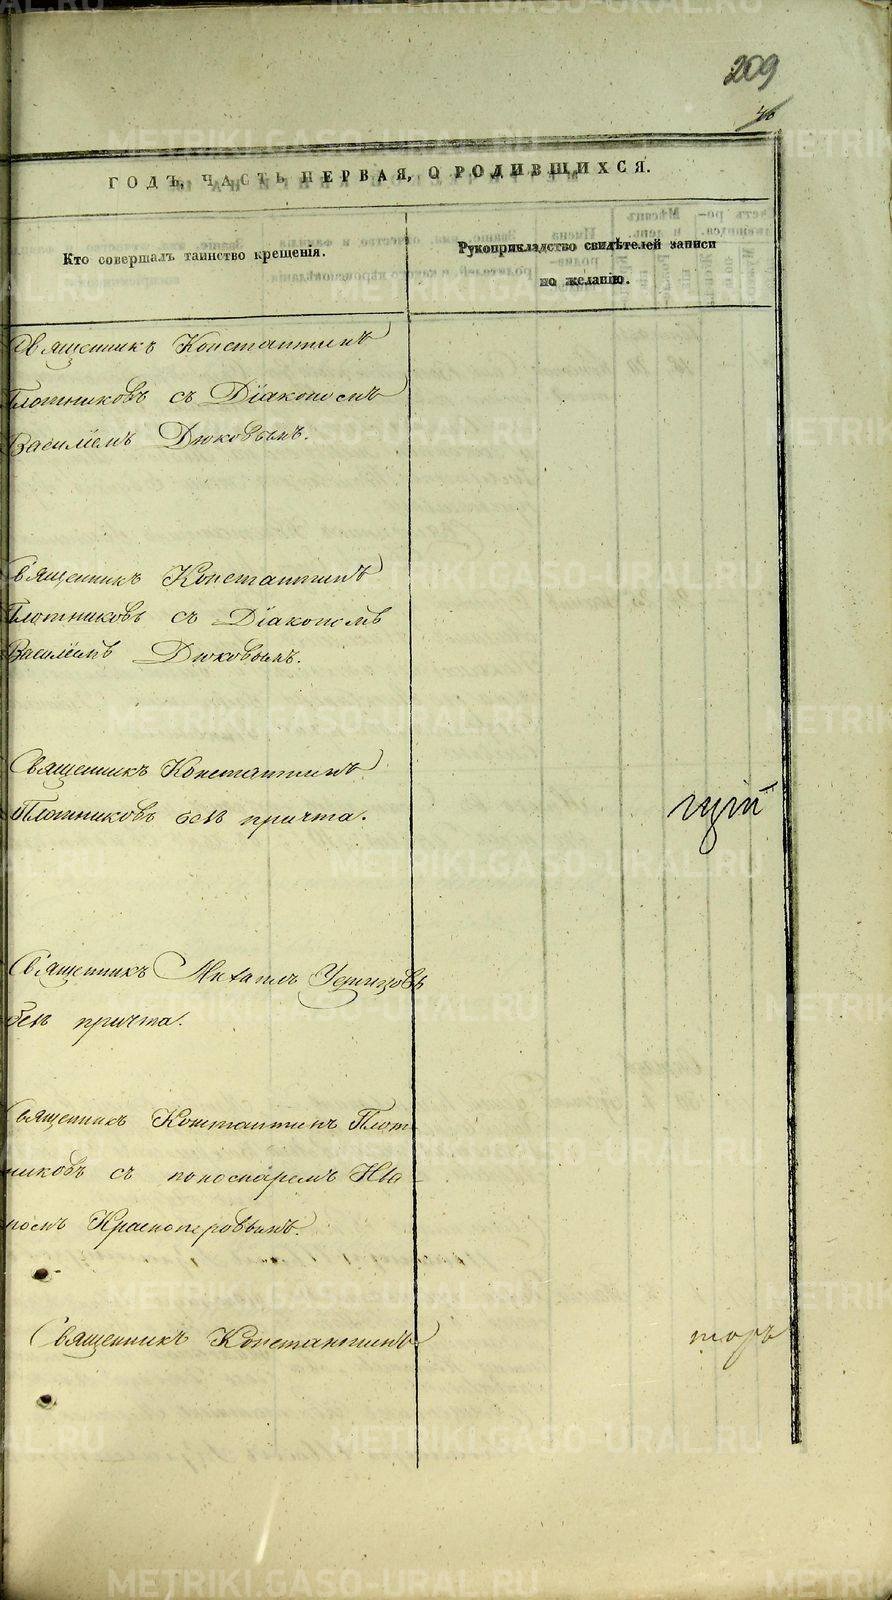 209
46
ГОДЪ, ЧАСТЬ ПЕРВАЯ, О РОДИВШИХСЯ.
Кто совершалъ таинство крещенія.
Рукоприкладство свидѣтелей записи
по желанію.
Священникъ Константинъ
Плотниковъ съ Діакономъ
Василіемъ Дюковымъ.
Священникъ Константинъ
Плотниковъ съ Діакономъ
Василіемъ Дюковымъ.
Священникъ Константинъ
Плотниковъ безъ причта.
Священникъ Михаилъ
безъ причта.
Священникъ Константинъ Плот-
никовъ съ пономаремъ
Красноперовымъ.
Священникъ Константинъ
торъ
METRIKI.GASO-URAL.RU